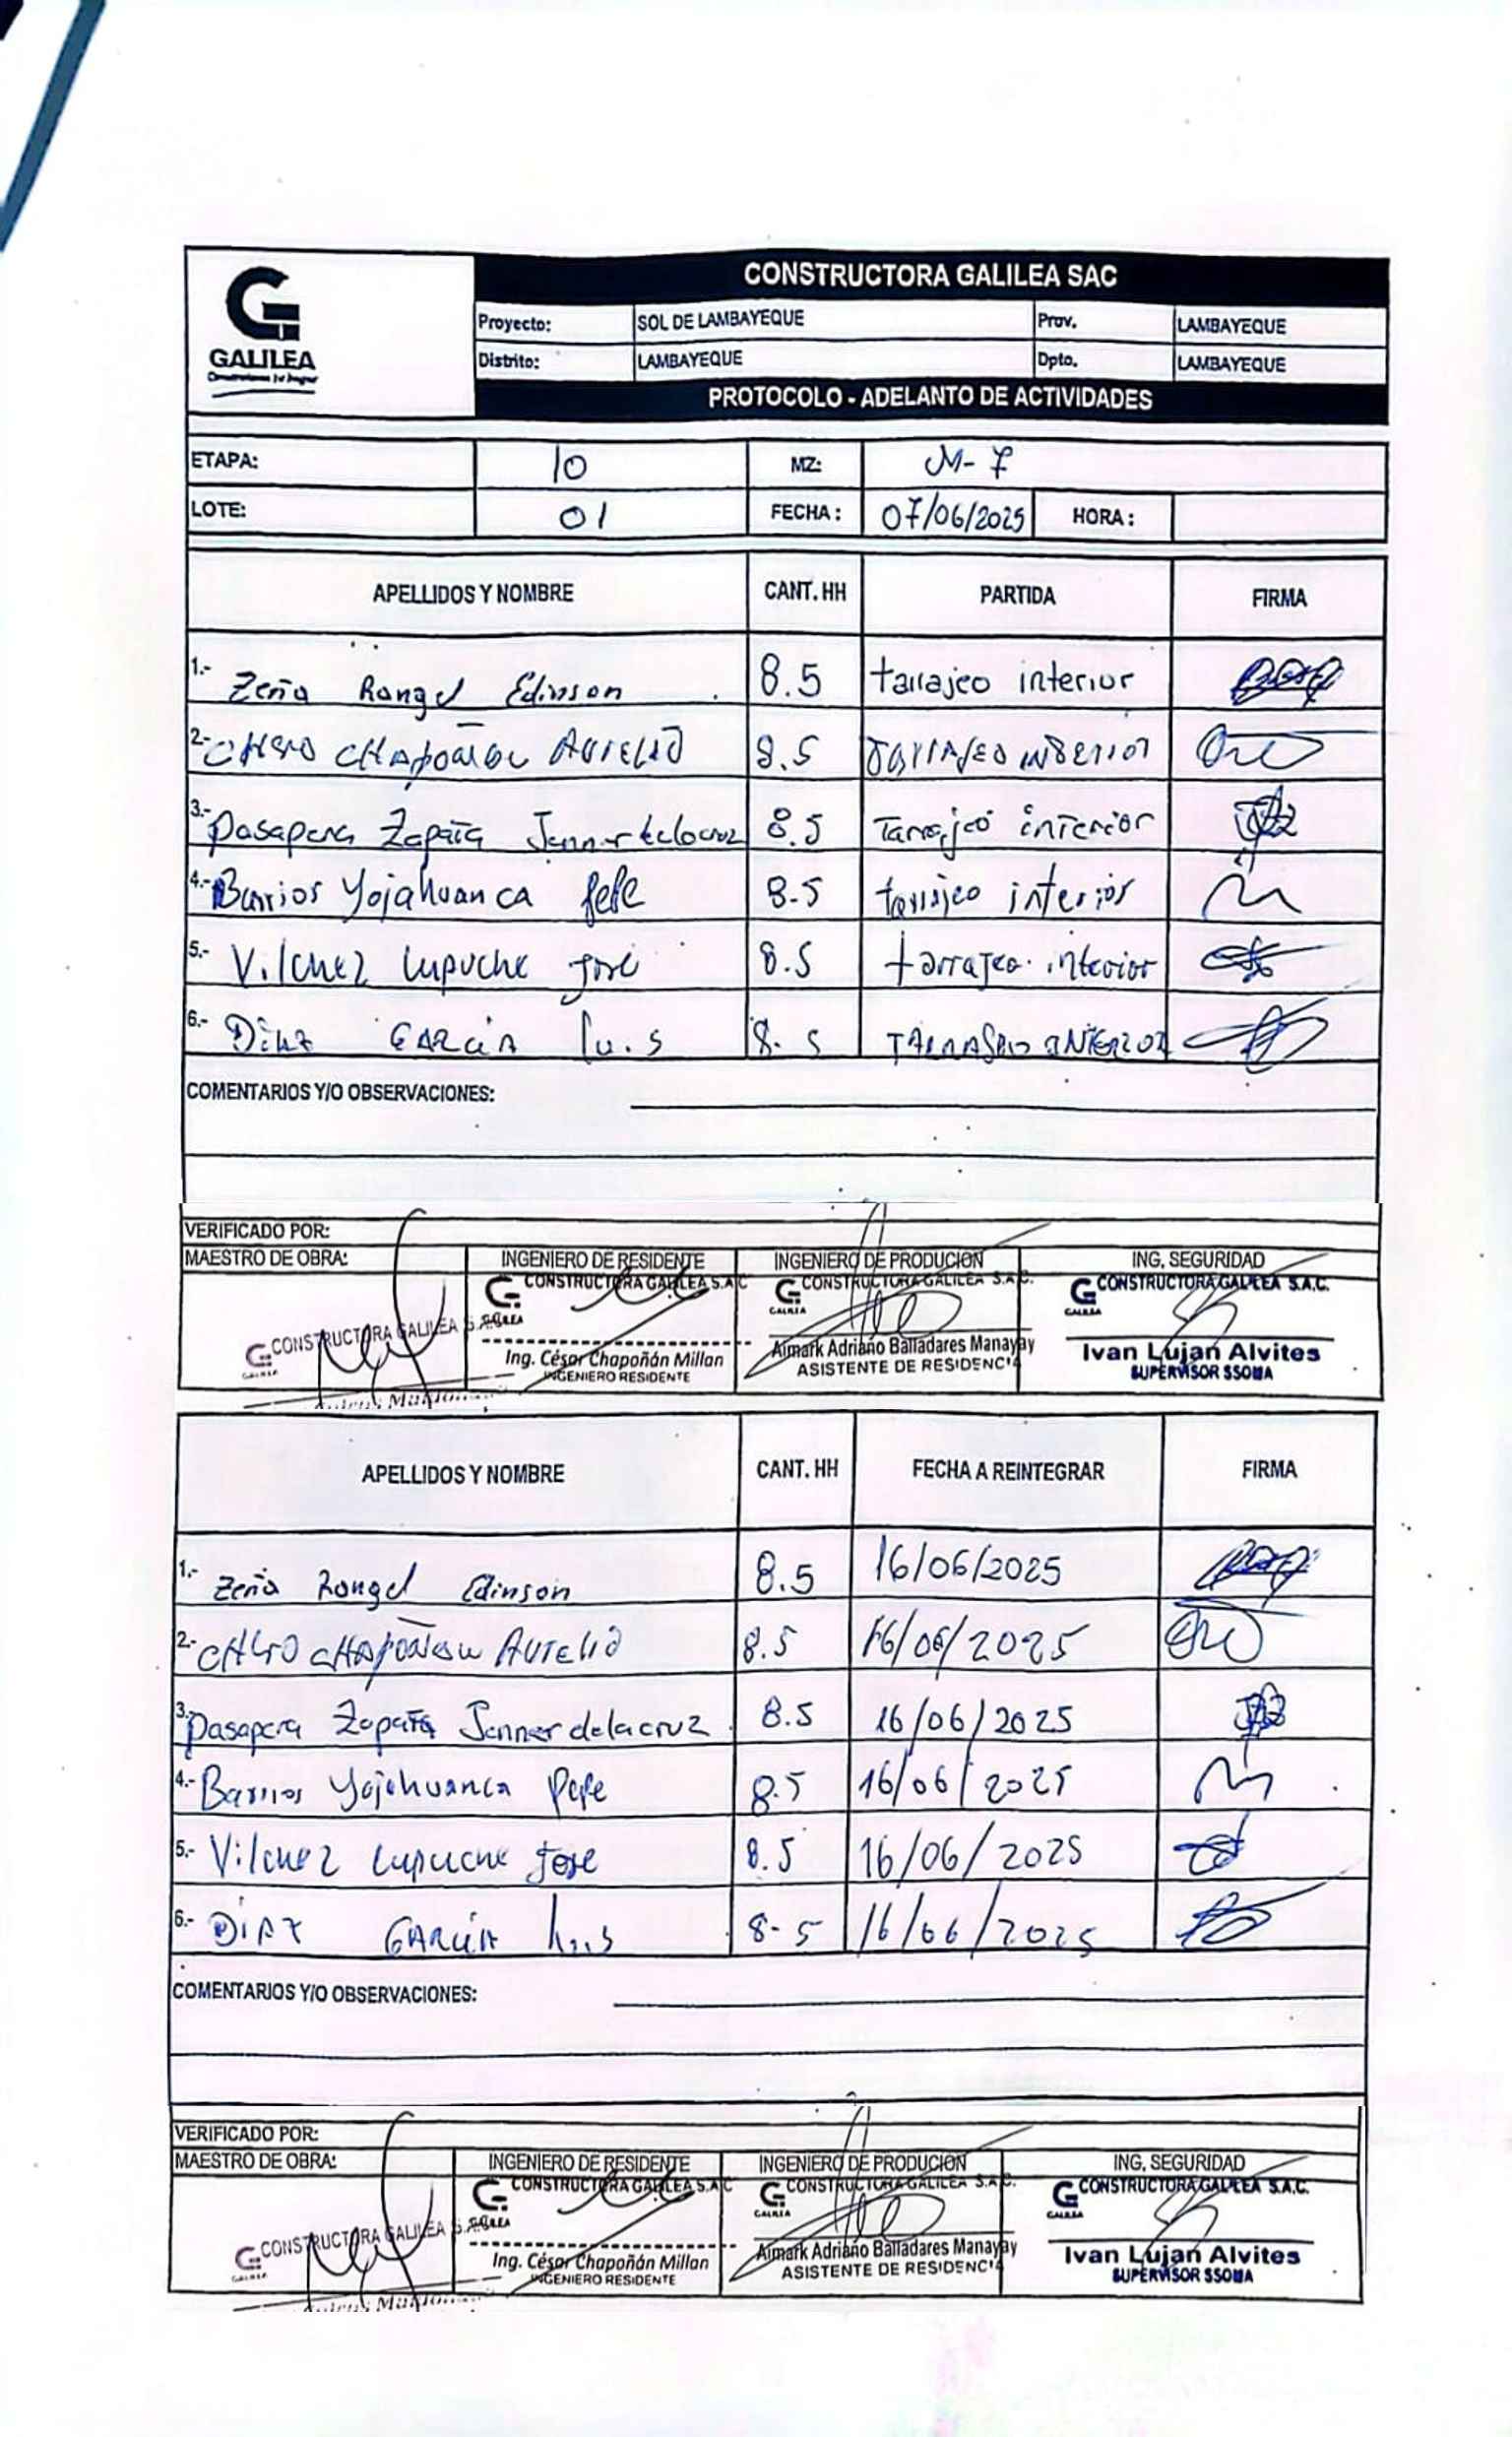 GALILEA
CONSTRUCTORA GALILEA SAC
Proyecto: SOL DE LAMBAYEQUE Prov. LAMBAYEQUE
Distrito: LAMBAYEQUE Dpto. LAMBAYEQUE
PROTOCOLO - ADELANTO DE ACTIVIDADES
ETAPA: 10 MZ: M-7
LOTE: 01 FECHA: 07/06/2025 HORA:
APELLIDOS Y NOMBRE CANT. HH PARTIDA FIRMA
1.- Zeña Rangel Edinson 8.5 tarrajeo interior
2.- CHERO CHAPOÑAN AURELIO 8.5 TARRAJEO INTERIOR
3.- Pasapera Zapata Jenner delacruz 8.5 Tarrajeo interior
4.- Barrios Yojahuanca Pepe 8.5 tarrajeo interior
5.- Vilchez Lupuche Jose 8.5 tarrajeo interior
6.- Diaz GARCIA Luis 8.5 TARRAJEO INTERIOR
COMENTARIOS Y/O OBSERVACIONES:
VERIFICADO POR:
MAESTRO DE OBRA: INGENIERO DE RESIDENTE INGENIERO DE PRODUCION ING, SEGURIDAD
CONSTRUCTORA GALILEA S.A.C. CONSTRUCTORA GALILEA S.A.C. CONSTRUCTORA GALILEA S.A.C. CONSTRUCTORA GALILEA S.A.C.
Ing. César Chapoñán Millan Aimark Adriano Balladares Manayay Ivan Lujan Alvites
INGENIERO RESIDENTE ASISTENTE DE RESIDENCIA SUPERVISOR SSOMA
APELLIDOS Y NOMBRE CANT. HH FECHA A REINTEGRAR FIRMA
1.- Zeña Rangel Edinson 8.5 16/06/2025
2.- CHERO CHAPOÑAN AURELIO 8.5 16/06/2025
3.- Pasapera Zapata Jenner delacruz 8.5 16/06/2025
4.- Barrios Yojahuanca Pepe 8.5 16/06/2025
5.- Vilchez Lupuche Jose 8.5 16/06/2025
6.- DIAZ GARCIA Luis 8.5 16/06/2025
COMENTARIOS Y/O OBSERVACIONES:
VERIFICADO POR:
MAESTRO DE OBRA: INGENIERO DE RESIDENTE INGENIERO DE PRODUCION ING, SEGURIDAD
CONSTRUCTORA GALILEA S.A.C. CONSTRUCTORA GALILEA S.A.C. CONSTRUCTORA GALILEA S.A.C. CONSTRUCTORA GALILEA S.A.C.
Ing. César Chapoñán Millan Aimark Adriano Balladares Manayay Ivan Lujan Alvites
INGENIERO RESIDENTE ASISTENTE DE RESIDENCIA SUPERVISOR SSOMA